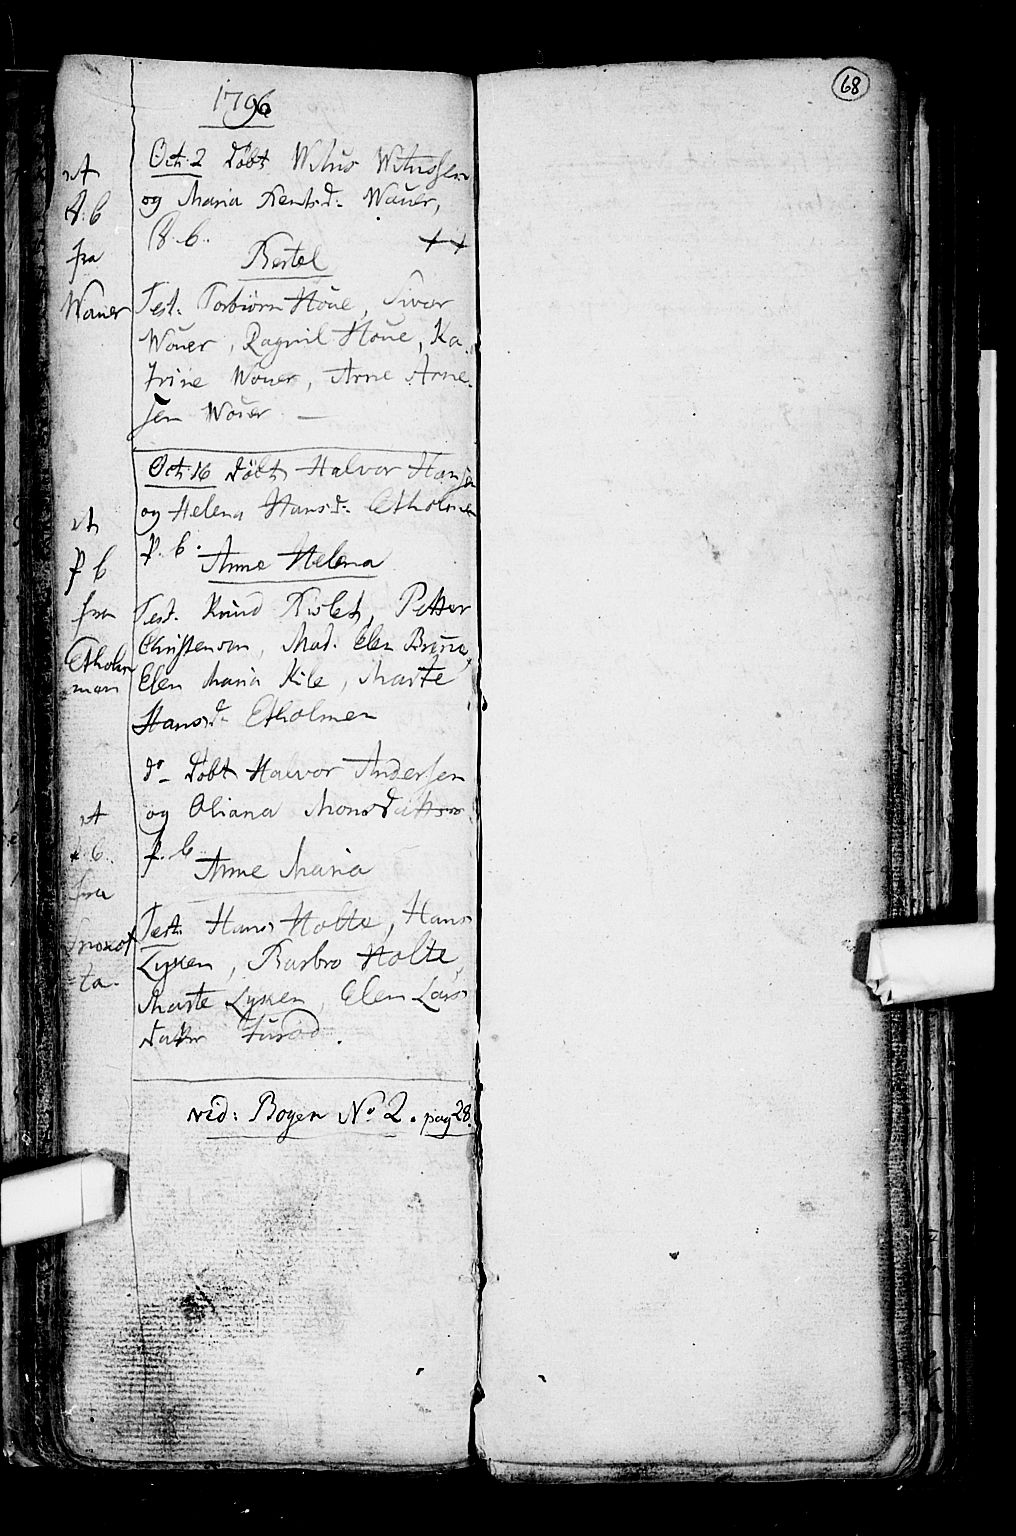 68
1796
Oct: 2 Döbt Vitus Vitussen
og Maria Bentsd: Wauer,
P. b. ++
Bertel
Test. Torbiörn Höue, Sivor
Wouer, Ragnil Höue, Ka
trine Wouer, Arne Arne
sen Wouer —
et
P. b
fra
Wauer
Oct: 16 Döbt Halvor Hansen
og Helena Hansd: Etholmen
P. b. Anne Helena
Test. Knud Petter
Christensen, Mad. Elen Bruna,
Elen Maria Kile, Marte
Hansd: Etholmen
et
P b
fra
Etholm
men
do Döbt Halvor Andersen
og Oliana Monsdatter
P. b. Anne Maria
Test: Hans Holte, Hans
Lysken, Barbro Holte
Marte Lysken, Elen Lars
datter
et
P. b.
fra
ta.
vid: Bogen No 2. pag 28.